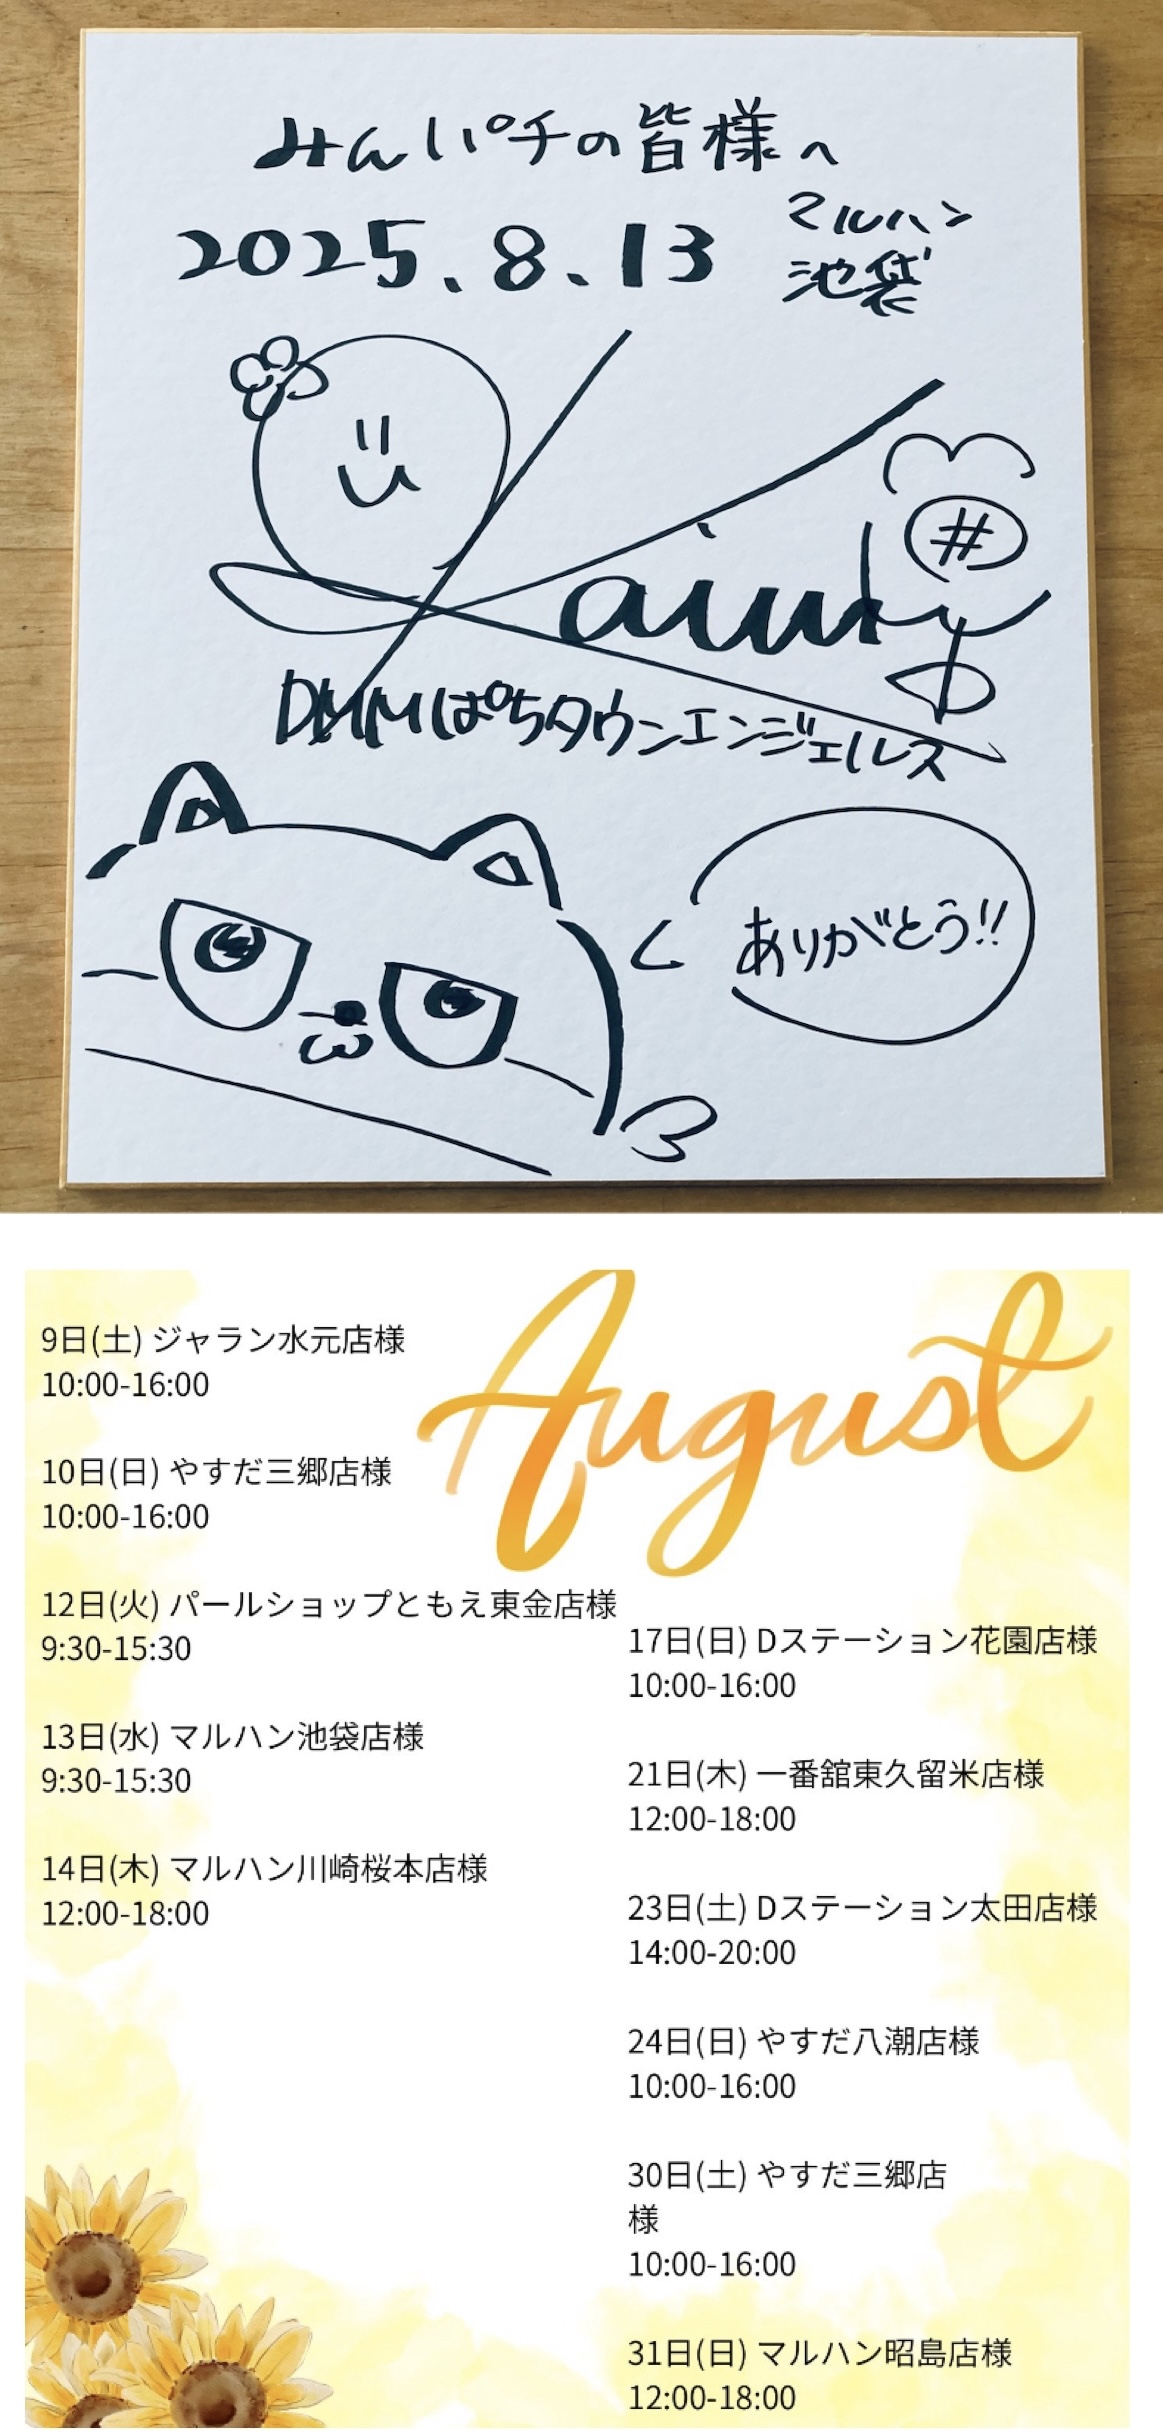 みんパチの皆様へ
2025.8.13
マルハン
池袋
#
DMMぱちタウンエンジェルス
ありがとう!!
August
9日(土) ジャラン水元店様
10:00-16:00
10日(日) やすだ三郷店様
10:00-16:00
12日(火) パールショップともえ東金店様
9:30-15:30
13日(水) マルハン池袋店様
9:30-15:30
14日(木) マルハン川崎桜本店様
12:00-18:00
17日(日) Dステーション花園店様
10:00-16:00
21日(木) 一番舘東久留米店様
12:00-18:00
23日(土) Dステーション太田店様
14:00-20:00
24日(日) やすだ八潮店様
10:00-16:00
30日(土) やすだ三郷店
様
10:00-16:00
31日(日) マルハン昭島店様
12:00-18:00